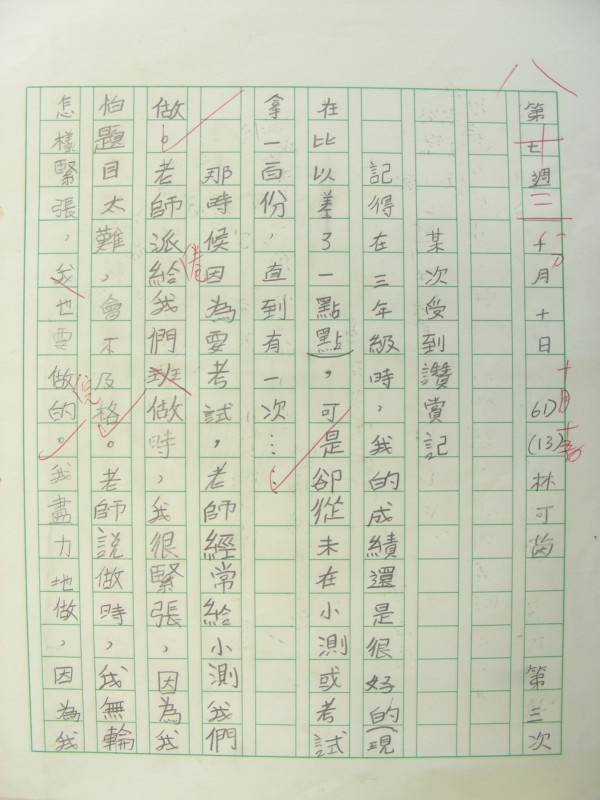 八
第七十週二十二月十日 6D(13) 林可茵 第三次
十月十六
某次受到讚賞記
記得在三年級時，我的成績還是很好的(現
在比以差了一點點)，可是卻從未在小測或考試
拿一百份，直到有一次……
那時候因為要考試，老師經常給小測我們
做。老師派給卷我們班做時，我很緊張，因為我
怕題目太難，會不及格。老師說做時，我無輪
怎樣緊張，我也要做完的。我盡力地做，因為我